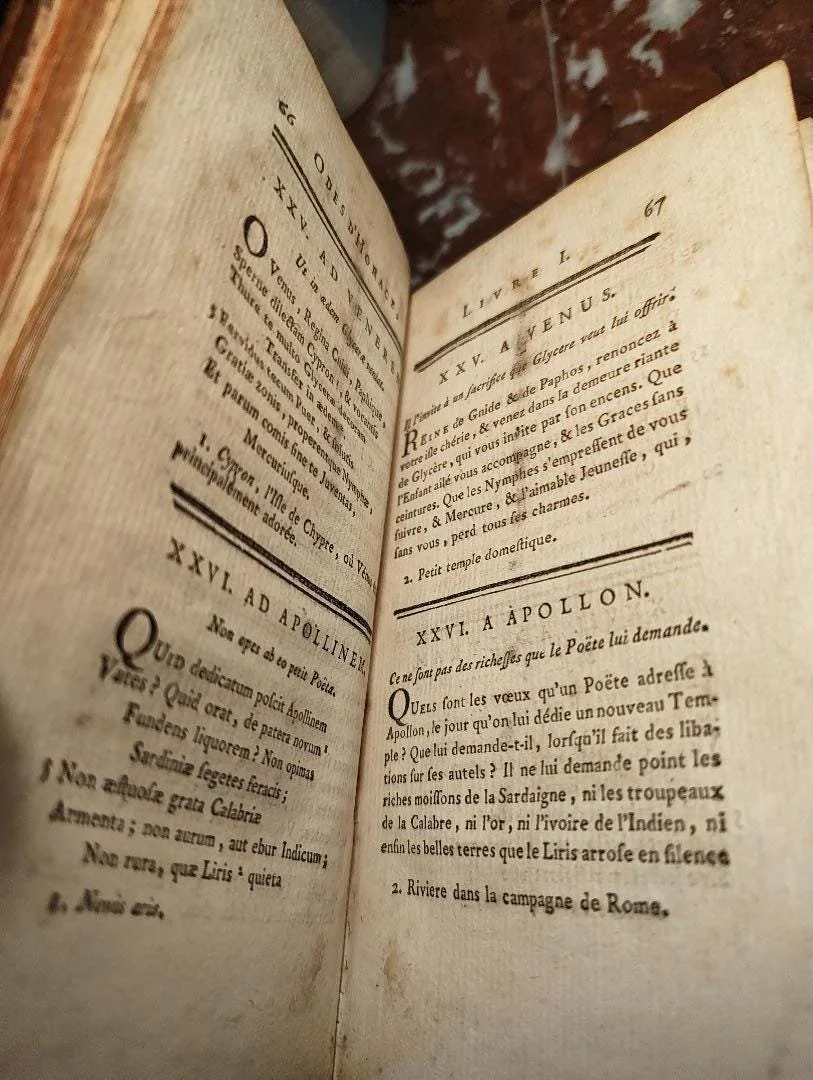 66 ODES D'HORACE,
XXV. AD VENERE
Ut in ædem Glyceræ veniat.
O Venus, Regina Cnidi, Paphique,
Sperne dilectam Cypron¹, & vocantis
Thure te multo Glyceræ decoram
Transfer in ædem.
5 Fervidus tecum Puer, & solutis
Gratiæ zonis, properentque Nymphæ,
Et parum comis sine te Juventas,
Mercuriusque.
1. Cypron, l'Isle de Chypre, où Vénus
principalement adorée.
XXVI. AD APOLLINEM.
Non opes ab eo petit Poëta.
QUID dedicatum poscit Apollinem
Vates? Quid orat, de patera novum ¹
Fundens liquorem? Non opimas
Sardiniæ segetes feracis;
5 Non æstuosæ grata Calabriæ
Armenta; non aurum, aut ebur Indicum;
Non rura, quæ Liris ² quieta
67
LIVRE I.
XXV. A VENUS.
Il l'invite à un sacrifice que Glycere veut lui offrir.
REINE de Gnide & de Paphos, renoncez à
votre isle chérie, & venez dans la demeure riante
de Glycère, qui vous invite par son encens. Que
l'Enfant ailé vous accompagne, & les Graces sans
ceintures. Que les Nymphes s'empressent de vous
suivre, & Mercure, & l'aimable Jeunesse, qui,
sans vous, perd tous ses charmes.
2. Petit temple domestique.
XXVI. A APOLLON.
Ce ne sont pas des richesses que le Poëte lui demande.
QUELS sont les vœux qu'un Poëte adresse à
Apollon, le jour qu'on lui dédie un nouveau Tem-
ple? Que lui demande-t-il, lorsqu'il fait des liba-
tions sur ses autels? Il ne lui demande point les
riches moissons de la Sardaigne, ni les troupeaux
de la Calabre, ni l'or, ni l'ivoire de l'Indien, ni
enfin les belles terres que le Liris arrose en silence
2. Riviere dans la campagne de Rome.